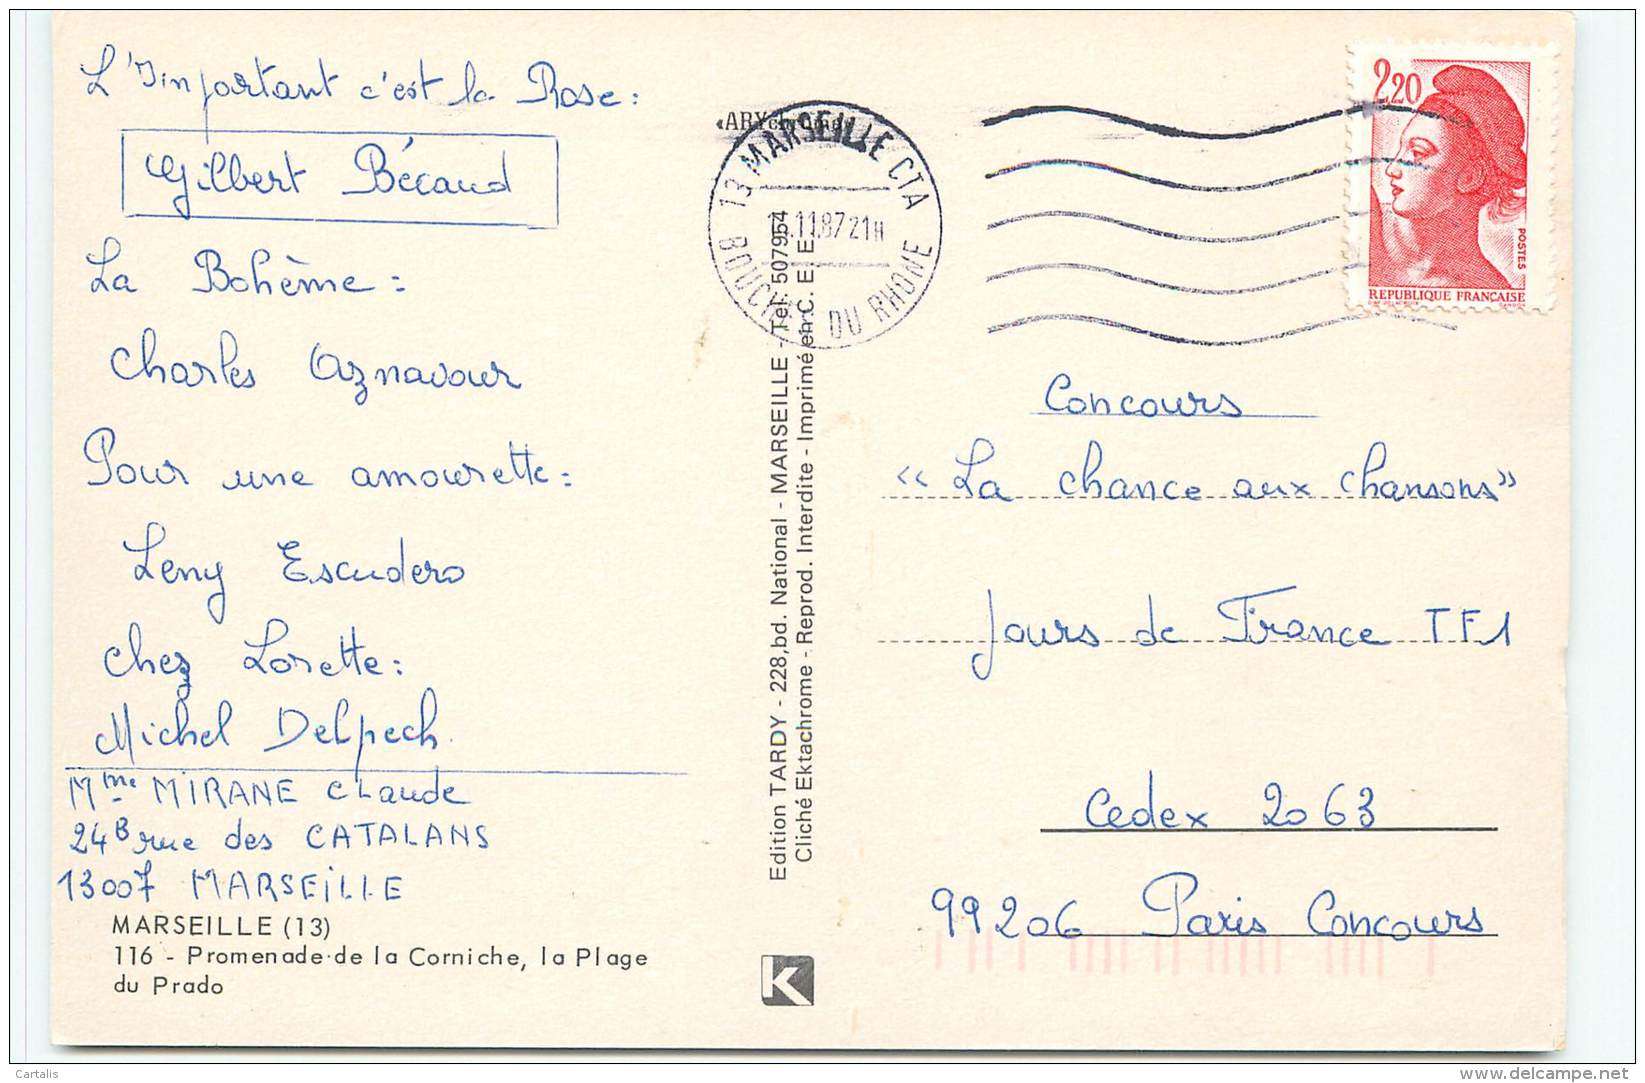 L'Important c'est la Rose :
Gilbert Bécaud
La Bohème :
Charles Aznavour
Pour une amourette :
Leny Escudero
Chez Lorette :
Michel Delpech.
Mme MIRANE Claude
24B rue des CATALANS
13007 MARSEILLE
MARSEILLE (13)
116 - Promenade de la Corniche, la Plage
du Prado
Edition TARDY - 228, bd. National - MARSEILLE - Tel. 507954
Cliché Ektachrome - Reprod. Interdite - Imprimé en C. E. E.
K
13 MARSEILLE CTA
.11.87 21H
DU RHONE
2,20
POSTES
REPUBLIQUE FRANÇAISE
Concours
« La chance aux chansons »
Jours de France TF1
Cedex 2063
99206 Paris Concours
Cartalis
www.delcampe.net